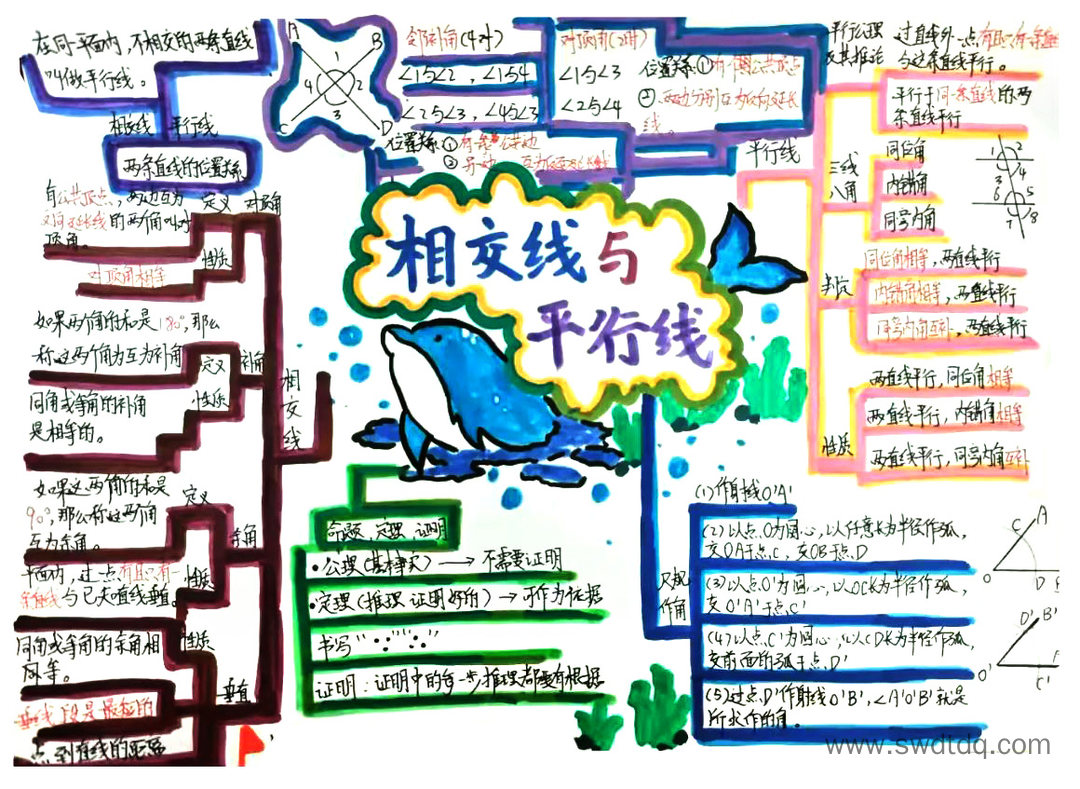 相交线与
平行线
在同一平面内,不相交的两条直线
叫做平行线。
相交线 平行线
两条直线的位置关系
A
B
C
D
1
2
3
4
邻补角(4对)
∠1与∠2,∠1与4
∠2与∠3,∠4与∠3
位置关系①有一条公共边
②另一边 互为反向延长线
对顶角(2对)
∠1与∠3
∠2与4
位置关系①有个公共顶点
②两边分别互为反向延长
线。
平行线
平行公理
及其推论
过直线外一点有且只有一条直线
与这条直线平行。
平行于同一条直线的两
条直线平行
三线
八角
同位角
内错角
同旁内角
1 2
3 4
6 5
7 8
判定
同位角相等,两直线平行
内错角相等,两直线平行
同旁内角互补,两直线平行
性质
两直线平行,同位角相等
两直线平行,内错角相等
两直线平行,同旁内角互补
相交线
对顶角
定义
有公共顶点,两边互为
反向延长线的两角叫对
顶角。
性质
对顶角相等
补角
定义
如果两个角的和是180°,那么
称这两个角为互为补角
性质
同角或等角的补角
是相等的。
余角
定义
如果这两个角的和是
90°,那么称这两个角
互为余角。
性质
平面内,过一点有且只有一
条直线与已知直线垂直。
性质
同角或等角的余角相
等。
垂直
垂线段是最短的
点到直线的距离
命题,定理,证明
·公理(基本事实)→不需要证明
·定理(推理证明好的)→可作为依据
书写"∵""∴"
证明:证明中的每一步推理都要有根据
尺规
作角
(1)作射线O'A'
(2)以点O为圆心,以任意长为半径作弧,
交OA于点C,交OB于点D
(3)以点O'为圆心,以OC长为半径作弧,
交O'A'于点C'
(4)以点C'为圆心,以CD长为半径作弧,
交前面的弧于点D'
(5)过点D'作射线O'B',∠A'O'B'就是
所求作的角。
A
C
O
D
D'
B'
O'
C'
www.swdtdq.com